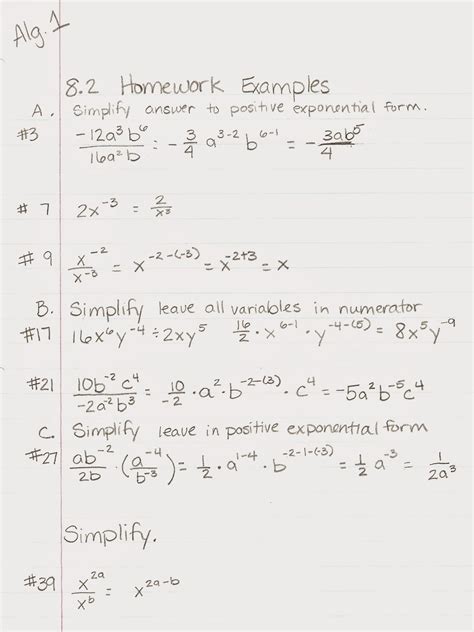 Alg. 1
8.2 Homework Examples
A. Simplify answer to positive exponential form.
#3 \frac{-12a^3b^6}{16a^2b} = -\frac{3}{4} a^{3-2} b^{6-1} = -\frac{3ab^5}{4}
#7 2x^{-3} = \frac{2}{x^3}
#9 \frac{x^{-2}}{x^{-3}} = x^{-2-(-3)} = x^{-2+3} = x
B. Simplify leave all variables in numerator
#17 16x^6y^{-4} ÷ 2xy^5 \frac{16}{2} · x^{6-1} · y^{-4-(5)} = 8x^5y^{-9}
#21 \frac{10b^{-2}c^4}{-2a^{-2}b^3} = \frac{10}{-2} · a^2 · b^{-2-(3)} · c^4 = -5a^2b^{-5}c^4
C. Simplify leave in positive exponential form
#27 \frac{ab^{-2}}{2b} · (\frac{a^{-4}}{b^{-3}}) = \frac{1}{2} · a^{1-4} · b^{-2-1-(-3)} = \frac{1}{2} a^{-3} = \frac{1}{2a^3}
Simplify.
#39 \frac{x^{2a}}{x^b} = x^{2a-b}